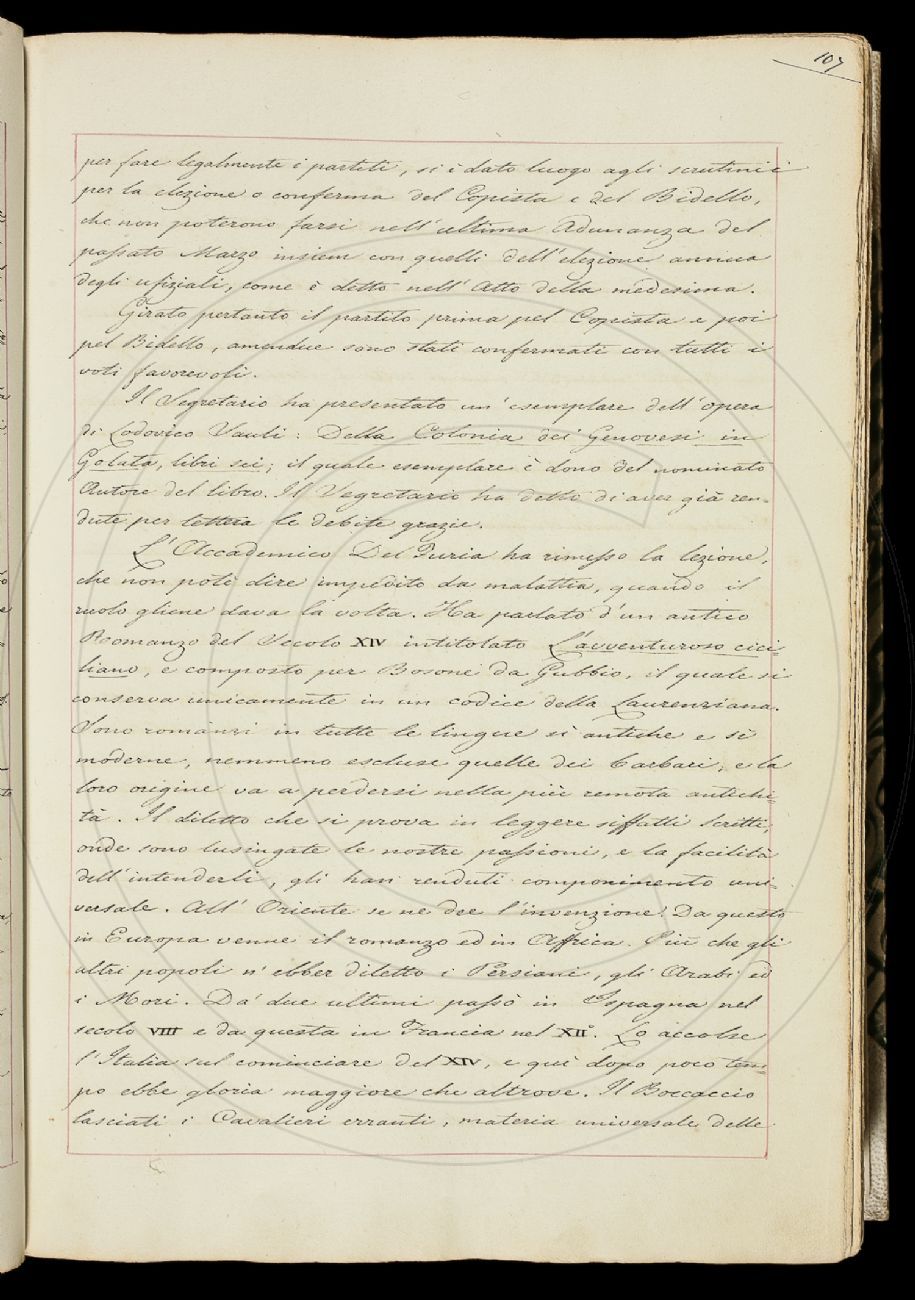 107
per fare legalmente i partiti, si è dato luogo agli scrutinii
per la elezione o conferma del Copista e del Bidello,
che non poterono farsi nell' ultima Adunanza del
passato Marzo insiem con quelli dell' elezione annua
degli ufiziali, come è detto nell' Atto della medesima.
Girato pertanto il partito prima pel Copista e poi
pel Bidello, amendue sono stati confermati con tutti i
voti favorevoli.
Il Segretario ha presentato un' esemplare dell' opera
di Lodovico Sauli: Della Colonia dei Genovesi in
Galata, libri sei; il quale esemplare è dono del nominato
Autore del libro. Il Segretario ha detto di aver già ren-
dute per lettera le debite grazie.
L' Accademico Del Furia ha rimesso la lezione,
che non potè dire impedito da malattia, quando il
ruolo gliene dava la volta. Ha parlato d'un antico
Romanzo del Secolo XIV intitolato L'avventuroso cici-
liano, e composto per Bosone da Gubbio, il quale si
conserva unicamente in un codice della Laurenziana.
Sono romanzi in tutte le lingue sì antiche e sì
moderne, nemmeno escluse quelle dei barbari, e la
loro origine va a perdersi nella più remota antichi-
tà. Il diletto che si prova in leggere siffatti scritti,
onde sono lusingate le nostre passioni, e la facilità
dell' intenderli, gli han renduti componimento uni-
versale. All' Oriente se ne dee l'invenzione. Da questo
in Europa venne il romanzo ed in Affrica. Più che gli
altri popoli n' ebber diletto i Persiani, gli Arabi ed
i Mori. Da' due ultimi passò in Ispagna nel
secolo VIII e da questa in Francia nel XII°. Lo accolse
l'Italia sul cominciare del XIV, e quì dopo poco tem-
po ebbe gloria maggiore che altrove. Il Boccaccio
lasciati i Cavalieri erranti, materia universale delle